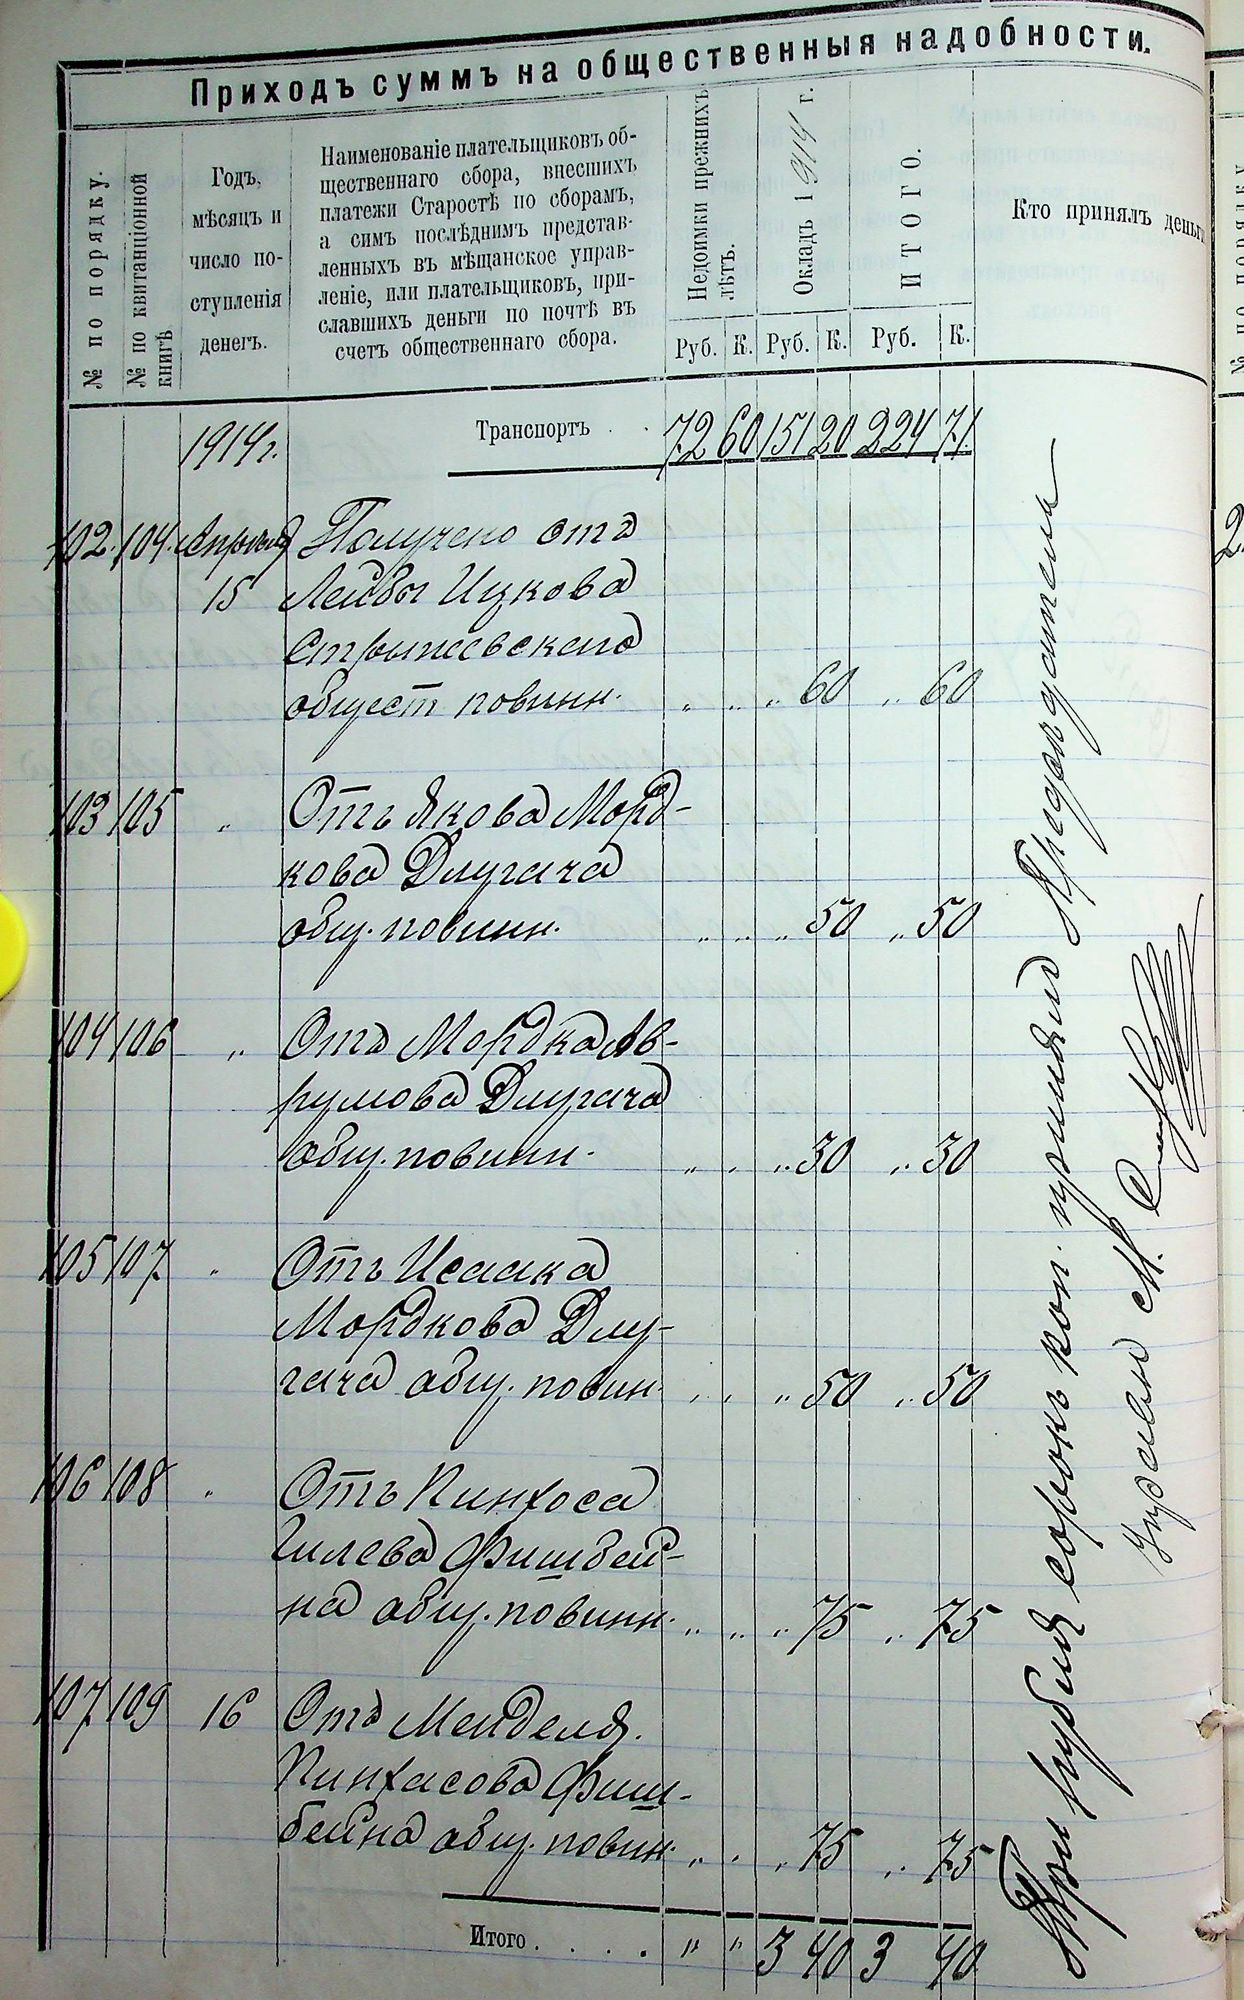 Приходъ суммъ на общественныя надобности.
№ по порядку.
№ по квитанціонной
книгѣ
Годъ,
мѣсяцъ и
число по-
ступленія
денегъ.
Наименованіе плательщиковъ об-
щественнаго сбора, внесшихъ
платежи Старостѣ по сборамъ,
а симъ послѣднимъ представ-
ленныхъ въ мѣщанское управ-
леніе, или плательщиковъ, при-
славшихъ деньги по почтѣ въ
счетъ общественнаго сбора.
Недоимки прежнихъ
лѣтъ.
Окладъ 1914 г.
ИТОГО.
Кто принялъ деньги
№ по порядку
Руб. К. Руб. К. Руб. К.
1914 г. Транспортъ . . 72 60 151 20 224 71.
102. 104. Апрѣля Получено отъ
15 Лейбы Ицкова
Стрыжевского
общест повинн. „ „ „ 60 „ 60
103 105 „ Отъ Якова Морд-
кова Длугача
общ. повинн. „ „ „ 50 „ 50
104 106 „ Отъ Мордка Ав-
румова Длугача
общ. повинн. „ „ „ 30 „ 30
105 107 „ Отъ Исаака
Мордкова Длу-
гача общ. повин. „ „ „ 50 „ 50
106 108 „ Отъ Пинхоса
Гилева Фишбей-
на общ. повинн. „ „ „ 75 „ 75
107 109 16 Отъ Менделя
Пинхасова Фиш-
бейна общ. повин. „ „ „ 75 „ 75
Итого . . . . „ „ 3 40 3 40
Три рубля сорокъ коп. принялъ Предсѣдатель
Управы М.
2